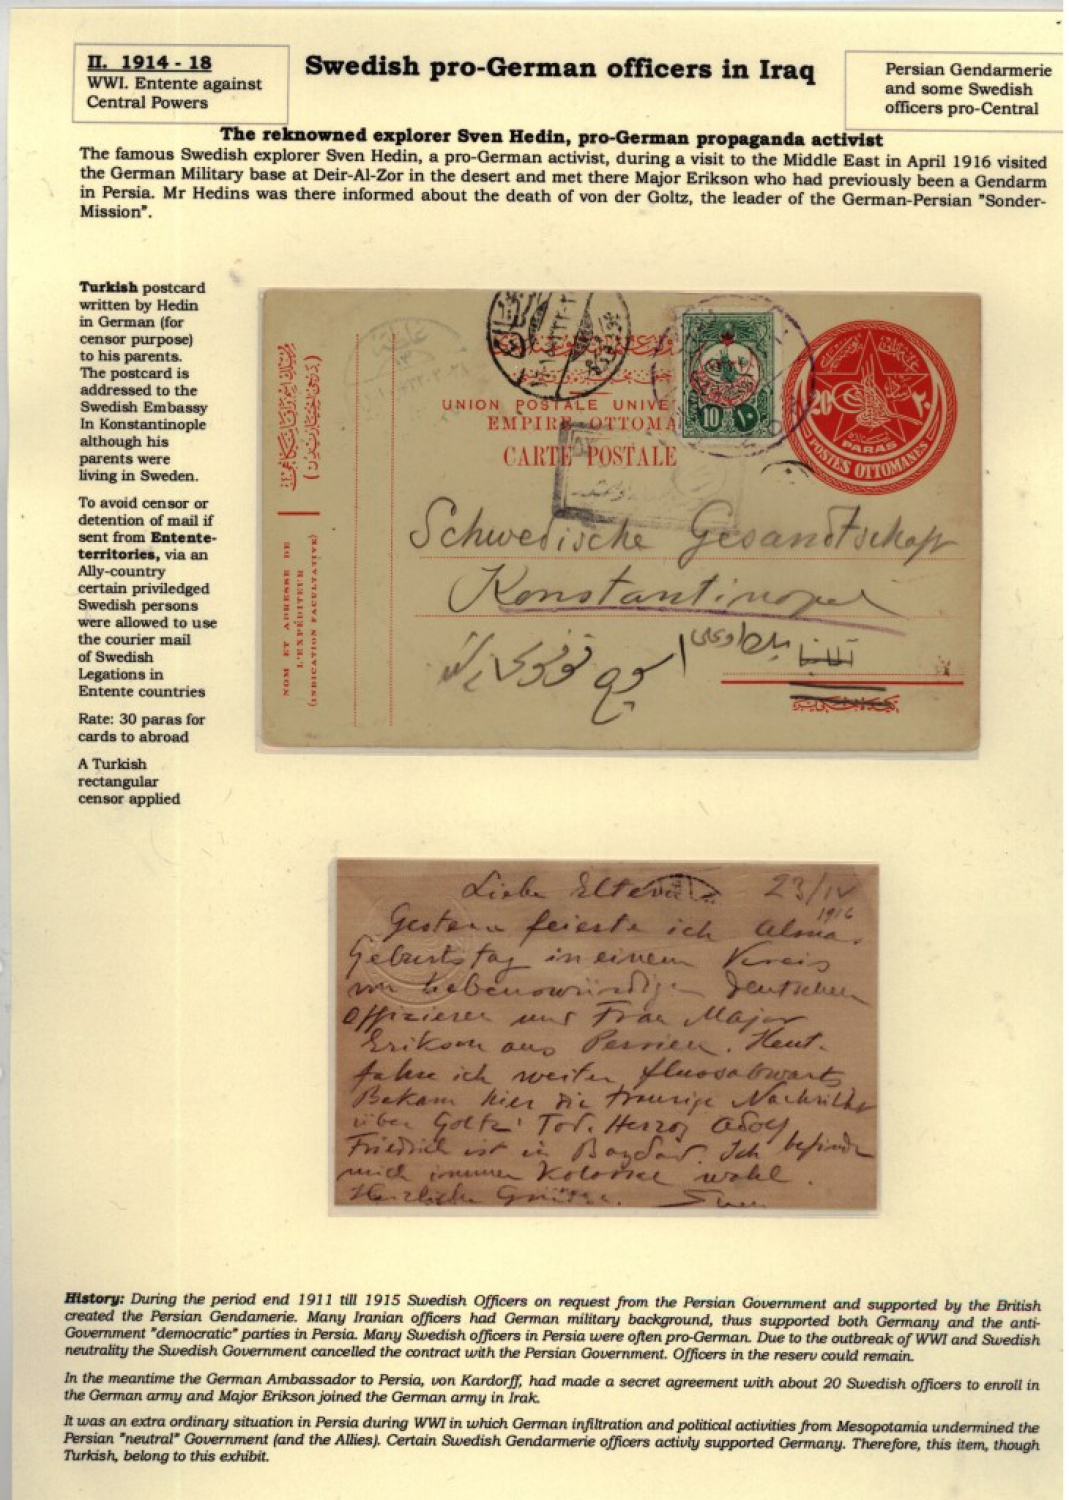 II. 1914 - 18
WWI. Entente against
Central Powers
Swedish pro-German officers in Iraq
Persian Gendarmerie
and some Swedish
officers pro-Central
The reknowned explorer Sven Hedin, pro-German propaganda activist
The famous Swedish explorer Sven Hedin, a pro-German activist, during a visit to the Middle East in April 1916 visited
the German Military base at Deir-Al-Zor in the desert and met there Major Erikson who had previously been a Gendarm
in Persia. Mr Hedins was there informed about the death of von der Goltz, the leader of the German-Persian "Sonder-
Mission".
Turkish postcard
written by Hedin
in German (for
censor purpose)
to his parents.
The postcard is
addressed to the
Swedish Embassy
In Konstantinople
although his
parents were
living in Sweden.
To avoid censor or
detention of mail if
sent from Entente-
territories, via an
Ally-country
certain priviledged
Swedish persons
were allowed to use
the courier mail
of Swedish
Legations in
Entente countries
Rate: 30 paras for
cards to abroad
A Turkish
rectangular
censor applied
UNION POSTALE UNIVE
EMPIRE OTTOMA
CARTE POSTALE
10 ١٠
20 ٢٠
PARAS
POSTES OTTOMANES
NOM ET ADRESSE DE
L'EXPÉDITEUR
(INDICATION FACULTATIVE)
Schwedische Gesandtschaft
Konstantinopel
Liebe Eltern 23/IV
1916
Gestern feierte ich Almas
Geburtstag in einem Kreis
von liebenswürdigen deutschen
Offizieren und Frau Major
Erikson aus Persien. Heute
fahre ich weiter flussabwärts
Bekam hier die traurige Nachricht
über Goltz' Tod. Herzog Adolf
Friedrich ist in Bagdad. Ich befinde
mich immer kolossal wohl.
Herzliche Grüsse. Sven
History: During the period end 1911 till 1915 Swedish Officers on request from the Persian Government and supported by the British
created the Persian Gendamerie. Many Iranian officers had German military background, thus supported both Germany and the anti-
Government "democratic" parties in Persia. Many Swedish officers in Persia were often pro-German. Due to the outbreak of WWI and Swedish
neutrality the Swedish Government cancelled the contract with the Persian Government. Officers in the reserv could remain.
In the meantime the German Ambassador to Persia, von Kardorff, had made a secret agreement with about 20 Swedish officers to enroll in
the German army and Major Erikson joined the German army in Irak.
It was an extra ordinary situation in Persia during WWI in which German infiltration and political activities from Mesopotamia undermined the
Persian "neutral" Government (and the Allies). Certain Swedish Gendarmerie officers activly supported Germany. Therefore, this item, though
Turkish, belong to this exhibit.